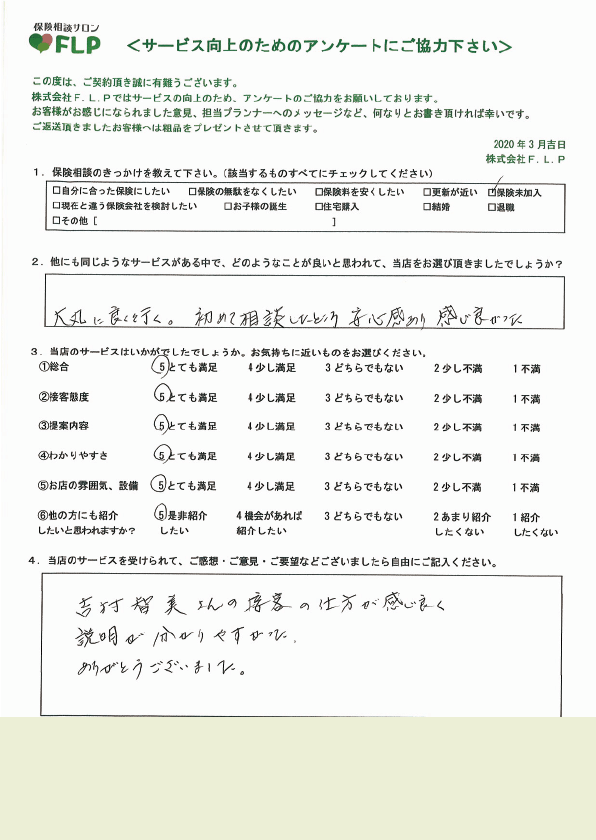 保険相談サロン
FLP
＜サービス向上のためのアンケートにご協力下さい＞
この度は、ご契約頂き誠に有難うございます。
株式会社Ｆ．Ｌ．Ｐではサービスの向上のため、アンケートのご協力をお願いしております。
お客様がお感じになられました意見、担当プランナーへのメッセージなど、何なりとお書き頂ければ幸いです。
ご返送頂きましたお客様へは粗品をプレゼントさせて頂きます。
2020年3月吉日
株式会社Ｆ．Ｌ．Ｐ
１．保険相談のきっかけを教えて下さい。（該当するものすべてにチェックしてください）
□自分に合った保険にしたい □保険の無駄をなくしたい □保険料を安くしたい □更新が近い ☑保険未加入
□現在と違う保険会社を検討したい □お子様の誕生 □住宅購入 □結婚 □退職
□その他［ ］
２．他にも同じようなサービスがある中で、どのようなことが良いと思われて、当店をお選び頂きましたでしょうか？
大丸に良く行く。初めて相談したところ安心感あり感じ良かった
３．当店のサービスはいかがでしたでしょうか。お気持ちに近いものをお選びください。
①総合 5とても満足 4少し満足 3どちらでもない 2少し不満 1不満
②接客態度 5とても満足 4少し満足 3どちらでもない 2少し不満 1不満
③提案内容 5とても満足 4少し満足 3どちらでもない 2少し不満 1不満
④わかりやすさ 5とても満足 4少し満足 3どちらでもない 2少し不満 1不満
⑤お店の雰囲気、設備 5とても満足 4少し満足 3どちらでもない 2少し不満 1不満
⑥他の方にも紹介 5是非紹介 4機会があれば 3どちらでもない 2あまり紹介 1紹介
したいと思われますか？ したい 紹介したい したくない したくない
４．当店のサービスを受けられて、ご感想・ご意見・ご要望などございましたら自由にご記入ください。
吉村智美さんの接客の仕方が感じ良く
説明が分かりやすかった。
ありがとうございました。